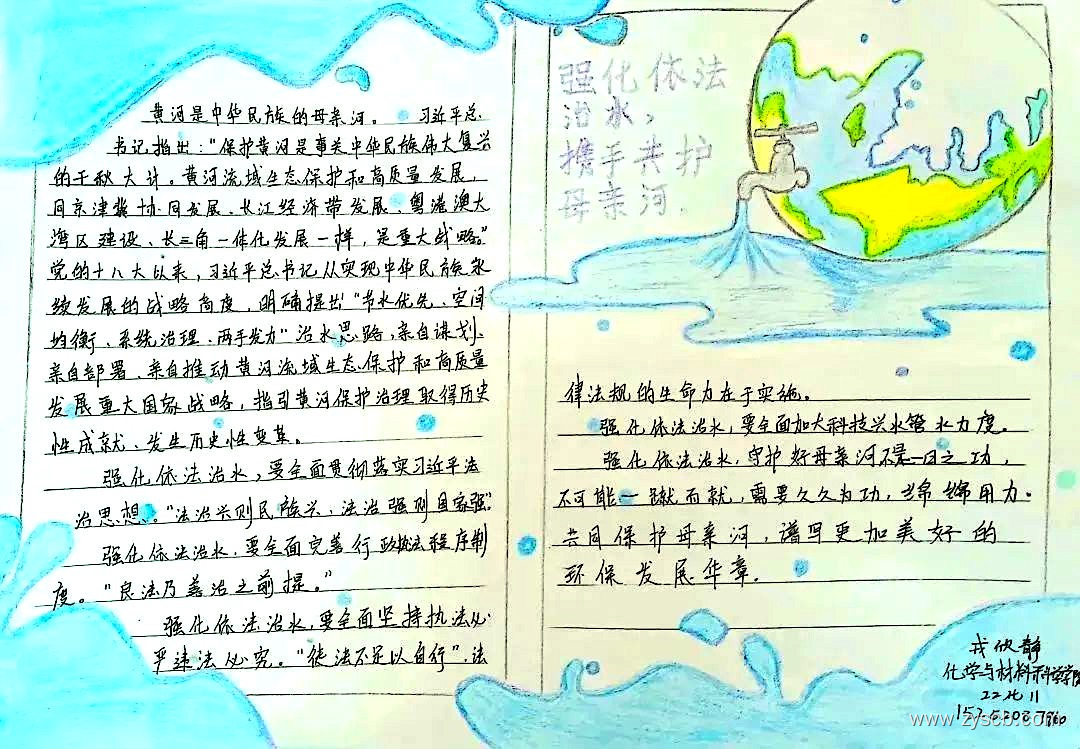 黄河是中华民族的母亲河。 习近平总
书记指出：“保护黄河是事关中华民族伟大复兴
的千秋大计。黄河流域生态保护和高质量发展，
同京津冀协同发展、长江经济带发展、粤港澳大
湾区建设、长三角一体化发展一样，是重大战略。”
党的十八大以来，习近平总书记从实现中华民族永
续发展的战略高度，明确提出“节水优先、空间
均衡、系统治理、两手发力”治水思路，亲自谋划、
亲自部署、亲自推动黄河流域生态保护和高质量
发展重大国家战略，指引黄河保护治理取得历史
性成就、发生历史性变革。
强化依法治水，要全面贯彻落实习近平法
治思想。“法治兴则民族兴，法治强则国家强”。
强化依法治水，要全面完善行政执法程序制
度。“良法乃善治之前提。”
强化依法治水，要全面坚持执法必
严违法必究。“徒法不足以自行”，法
强化依法
治水，
携手共护
母亲河.
律法规的生命力在于实施。
强化依法治水，要全面加大科技兴水管水力度。
强化依法治水，守护好母亲河不是一日之功，
不可能一蹴而就，需要久久为功，绵绵用力。
共同保护母亲河，谱写更加美好的
环保发展华章.
静
化学与材料科学学院
www.zyscb.com